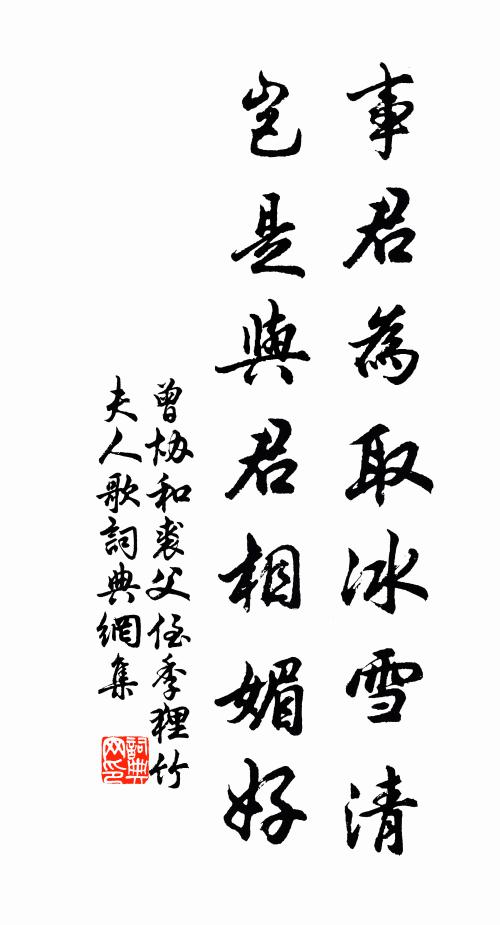 事君為取冰雪清
豈是與君相媚好
曾协和裘父侄季狸竹
夫人歌詞典網集
詞典网印